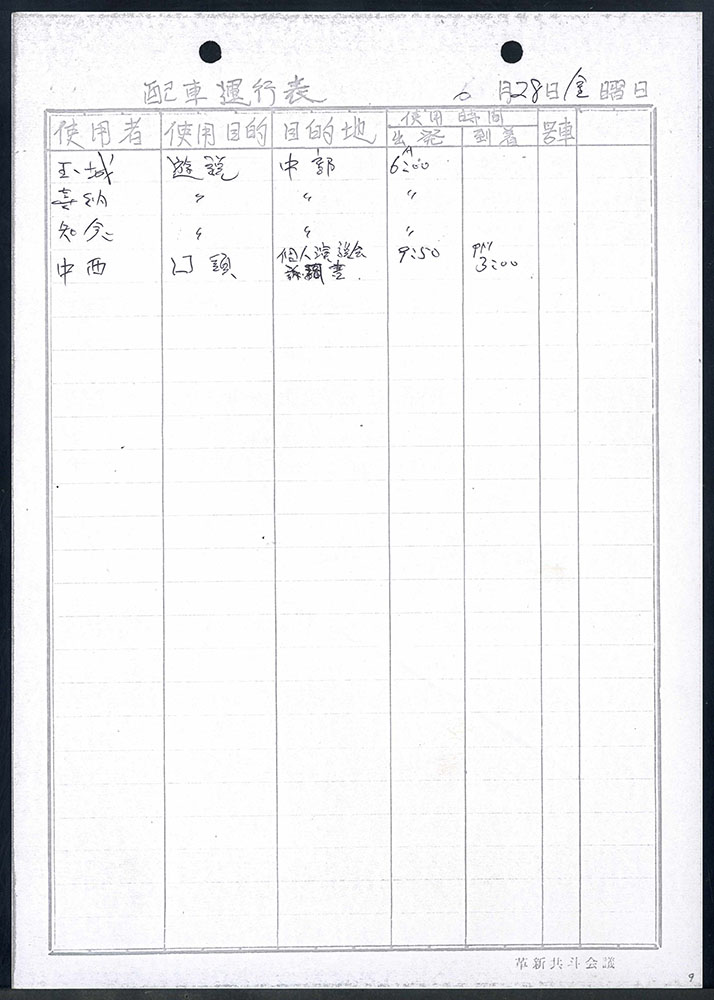 配車運行表 6月28日(金)曜日
使用者 使用目的 目的地 使用時間 車
出発 到着
玉城 遊説 中部 A 6:00
喜納 〃 〃 〃
知念 〃 〃 〃
中西 口頭 個人演説会 9:50 PM 3:00
書
革新共斗会議
9